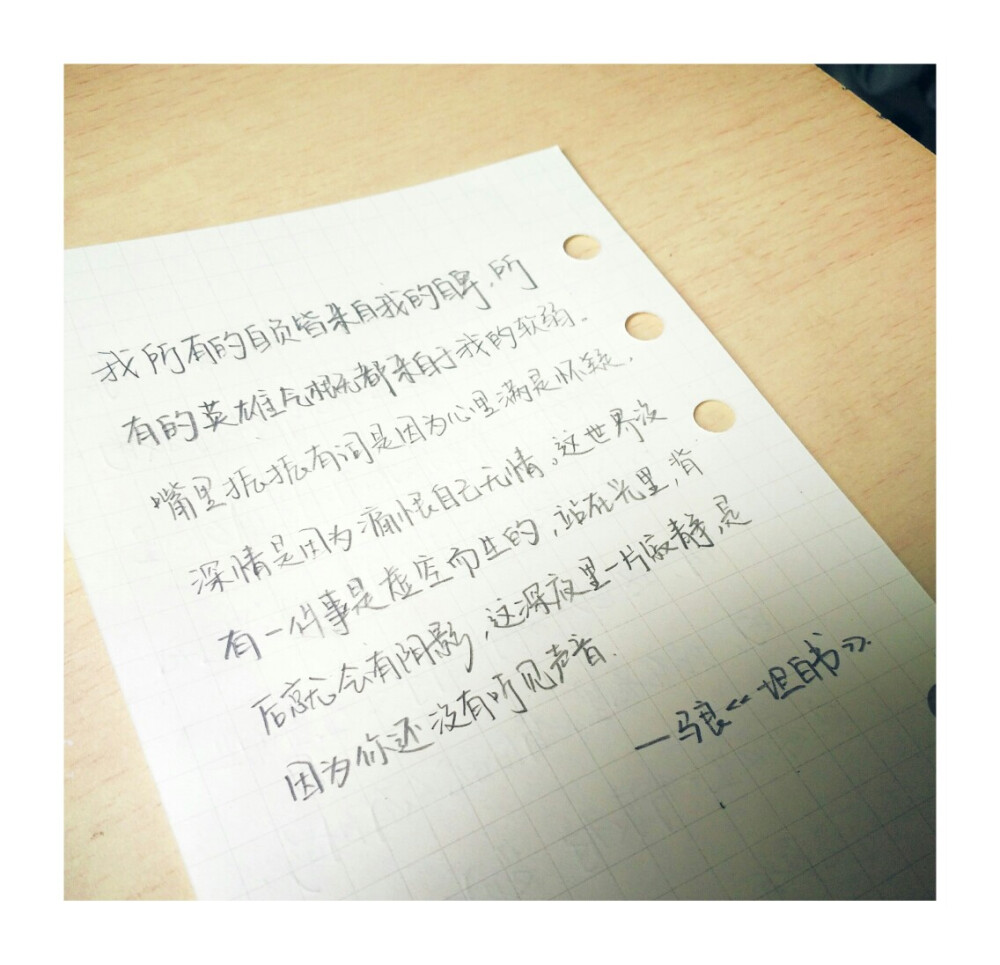 我所有的自负皆来自我的自卑，所
有的英雄气概都来自于我的软弱。
嘴里振振有词是因为心里满是怀疑，
深情是因为痛恨自己无情。这世界没
有一件事是虚空而生的，站在光里，背
后就会有阴影，这深夜里一片寂静，是
因为你还没有听见声音.
—马良《坦白书》.